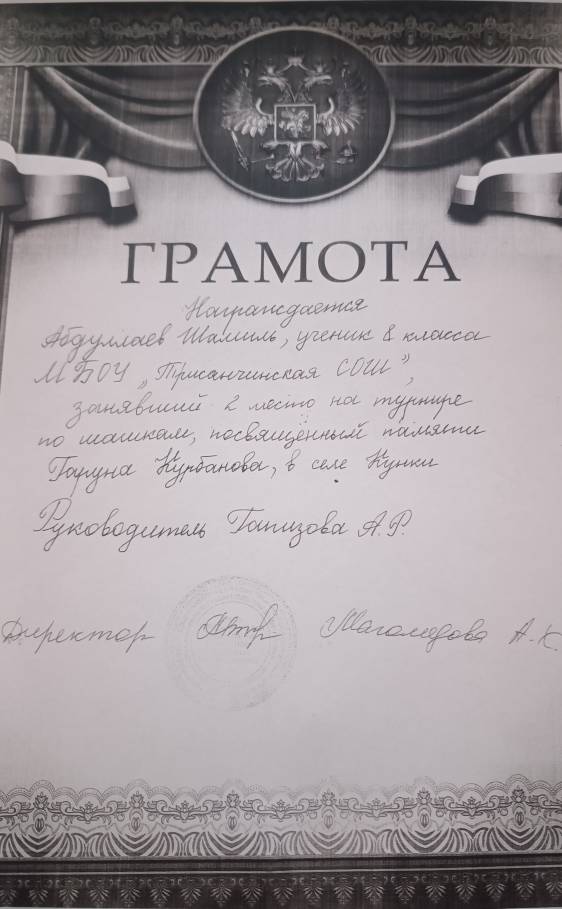 ГРАМОТА
Награждается
Абдуллаев Шамиль, ученик 8 класса
МБОУ „Трисанчинская СОШ”,
занявший 2 место на турнире
по шашкам, посвящённым памяти
Гаруна Курбанова, в селе Кунки
Руководитель Гапизова А.Р.
Директор Магомедова А.К.